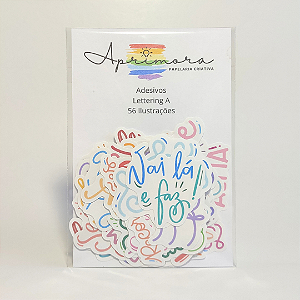 Aprimora
PAPELARIA CRIATIVA
Adesivos
Lettering A
56 Ilustrações
Vai lá
e faz!